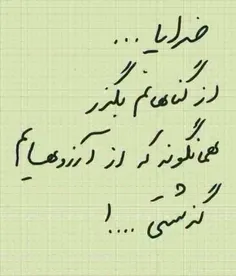 خدایا ...
از گناهانم بگذر
همانگونه که از آرزوهایم
گذشتی ....!